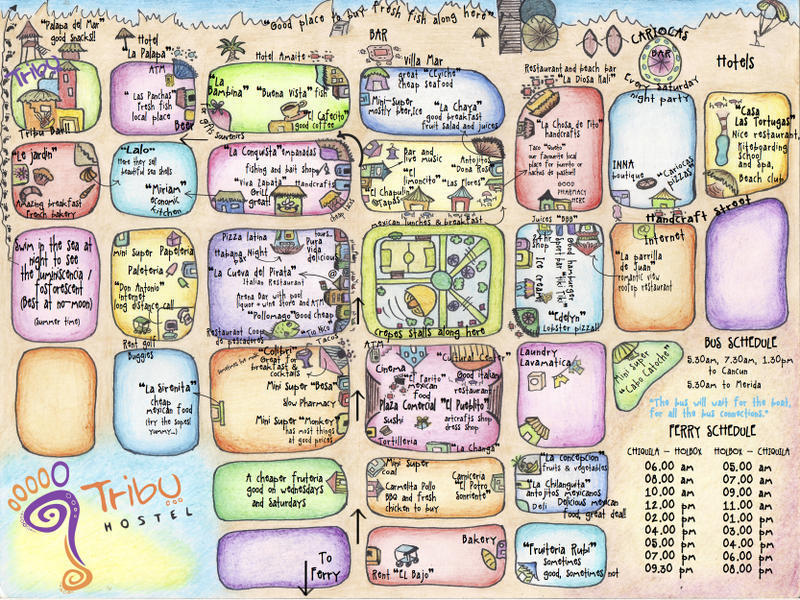 "Good place to buy fresh fish along here"
"Palapa del Mar"
good snacks!!
Hotel
"La Palapa"
Hotel Amaite
BAR
Villa Mar
CARIOCAS
BAR
Every Saturday
night party
Hotels
Tribu
Tribu Bar!!
ATM
"Las Panchas"
fresh fish
local place
Beer
"La
Bambina"
"Buena Vista" fish
"El Cafecito"
good coffee
souvenirs
great "Ceviche"
cheap seafood
Mini-super
mostly beer, Ice
"La Chaya"
good breakfast
fruit salad and juices
Restaurant and beach bar
"La Diosa Kali"
"La Chosa de Tito"
handcrafts
Taco "Cueto"
our favourite local
place for burrito or
nachos de pastor!!
GOOD
PHARMACY
HERE
INNA
boutique
"Cariocas"
pizzas
"Casa
Las Tortugas"
Nice restaurant,
Kiteboarding
school
and spa,
Beach club
"Le jardin"
Amazing breakfast
French bakery
"Lalo"
Here they sell
beautiful sea shells
"Miriam"
economic
kitchen
"La Conquista" empanadas
fishing and bait shop
"Viva Zapata"
Handcrafts
Grill
great!
cheap
Bar and
live music
"El
limoncito"
Antojitos
"Doña Rosi"
"Las Flores"
"El Chapulim"
Tapas
mexican lunches & breakfast
Handcraft Street
Swim in the sea at
night to see
the luminiscencia /
fosforescent
(Best at no-moon)
(summer time)
mini super
Papeleria
Paleteria
"Don Antonio"
internet
long distance call
Rent golf
Buggies
Pizza latina
tours...
Habana Night
Pura
Vida
delicious
"La Cueva del Pirata"
Italian Restaurant
Arena Bar with pool
liquor + wine store and ATM
"Pollomago" Good cheap
Restaurant Coop
de pescadores
"Tio Nico"
Tacos
crepes stalls along here
Juices "BBB"
24h
Shop
Ice cream
Good hamburger
sport bar "Tiki Tiki"
"Edelyn"
Lobster pizza!!
@
Internet
"La parrilla
de Juan"
romantic view
rooftop restaurant
"La Sirenita"
cheap
mexican food
(try the sopes!
yummy...)
"Colibri"
Great for
breakfast &
cocktails
Mini Super "Besa"
Slow Pharmacy
Mini Super "Monkey"
has most things
at good prices
ATM
"Cultural Center"
Cinema
"El Tarito"
mexican
food
Good italian
restaurant
Plaza Comercial "El Pueblito"
sushi
artcrafts shop
dress shop
Tortilleria
"La Changa"
Laundry
Lavamatica
Mini Super
"Cabo Catoche"
BUS SCHEDULE
5.30am, 7.30am, 1.30pm
to Cancun
5.30am to Merida
"The bus will wait for the boat,
for all the bus connections."
FERRY SCHEDULE
CHIQUILA - HOLBOX HOLBOX - CHIQUILA
06.00 am 05.00 am
08.00 am 07.00 am
10.00 am 09.00 am
12.00 am 11.00 am
02.00 pm 01.00 pm
04.00 pm 03.00 pm
05.00 pm 04.00 pm
07.00 pm 06.00 pm
09.30 pm 08.00 pm
Tribu
HOSTEL
A cheaper fruteria
good on wednesdays
and Saturdays
Mini super
coal
Carmelita Pollo
BBQ and fresh
chicken to buy
Carniceria
"El Potro
Sonriente"
"La Concepcion"
fruits & vegetables
"La Chilanguita"
antojitos mexicanos
Deli
Delicious mexican
food, great deal!!
To
Ferry
Bakery
Rent "El Bajo"
"Fruiteria Rubi"
sometimes
good, sometimes not